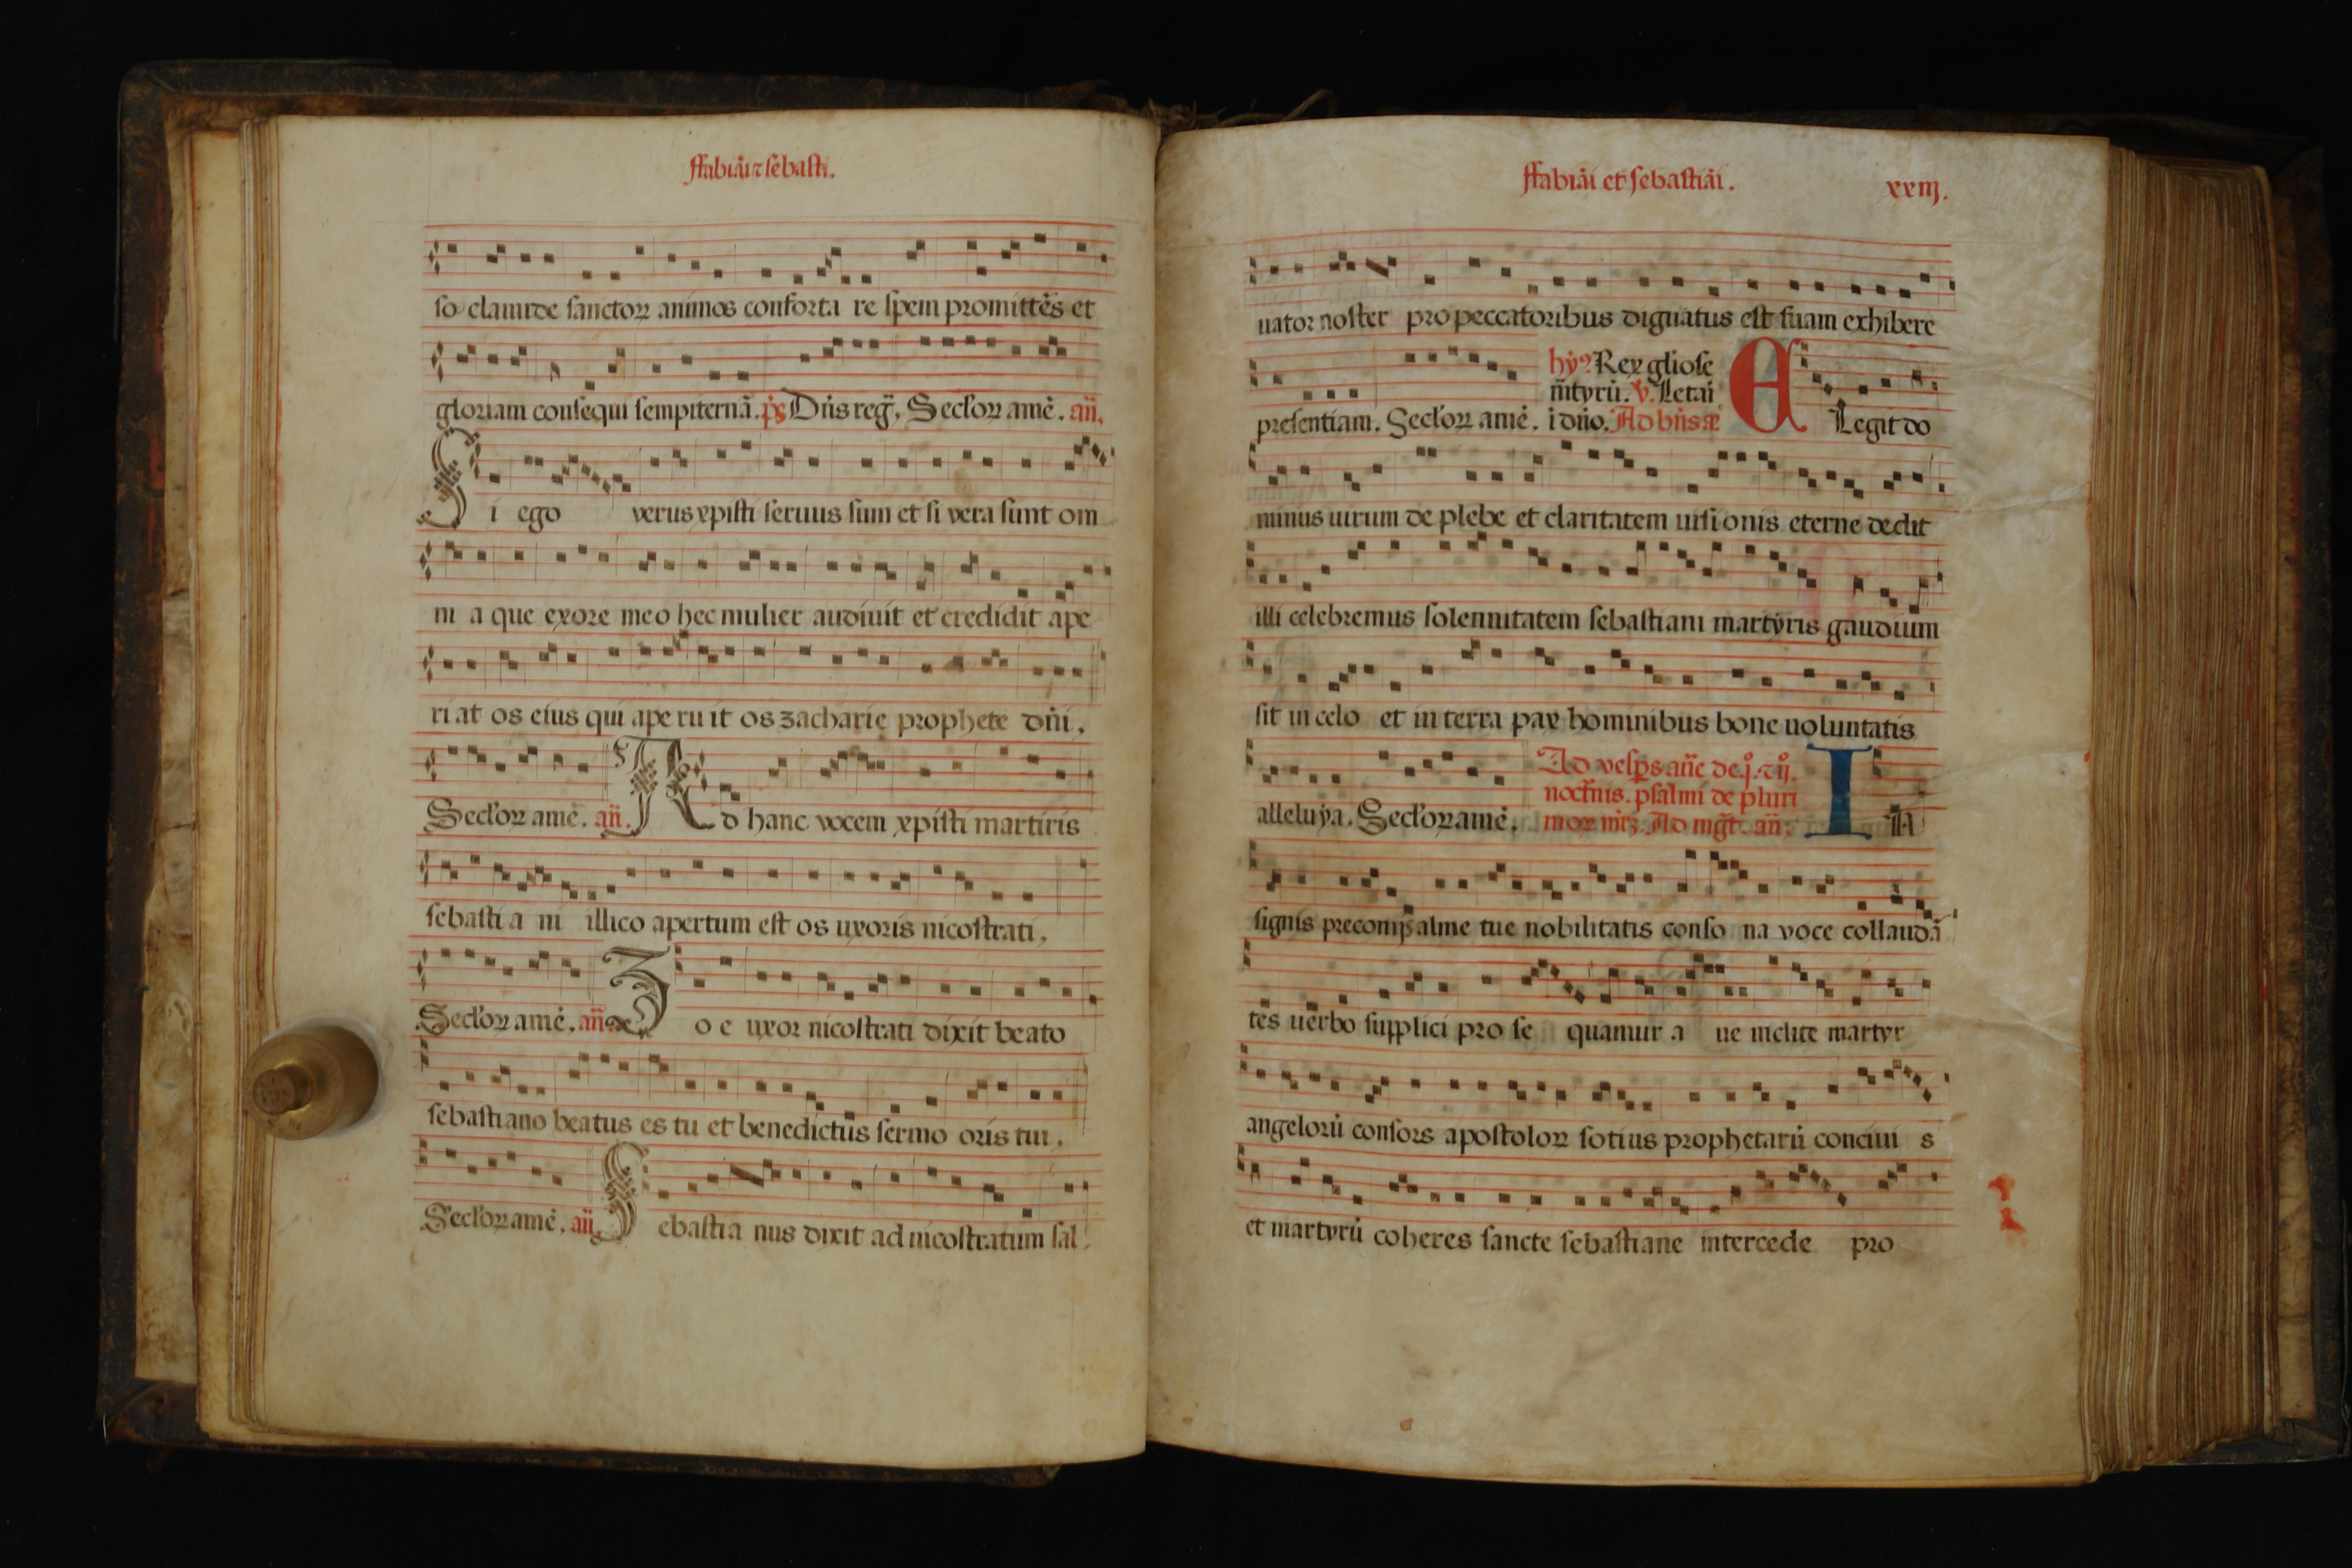 ffabiāi ⁊ sebasti.
so clamide sanctoꝝ animos conforta re spem promittēs et
gloriam consequi sempiternā. p̄s Dn̄s reḡ, Seclꝰoꝝ amē. an̄.
Si ego verus xpisti seruus sum et si vera sunt om
ni a que exore meo hec mulier audiuit et credidit ape
ri at os eius qui ape ru it os zacharie prophete dn̄i,
Seclꝰoꝝ amē. an̄. Ad hanc vocem xpisti martiris
sebasti a ni illico apertum est os uxoris nicostrati,
Seclꝰoꝝ amē. an̄ Zo e uxor nicostrati dixit beato
sebastiano beatus es tu et benedictus sermo oris tui,
Seclꝰoꝝ amē, an̄ Sebastia nus dixit ad nicostratum sal
ffabiāi et sebastiāi. xxiij.
uator noster pro peccatoribus dignatus est suam exhibere
hẏ⁹ Rex gliose
m̄tyrū. v̄. Letaī
presentiam. Seclꝰoꝝ amē. i dn̄o. Ad bn̄s a⁊ ELegit do
minus uirum de plebe et claritatem uisionis eterne dedit
illi celebremus solennitatem sebastiani martyris gaudium
sit in celo et in terra pax hominibus bone uoluntatis
Ad vesꝑs an̄e de. jº. ⁊ ijº.
noct̄nis. psalmi de pluri
alleluya. Seclꝰoꝝ amē, moꝝ m̄rꝫ. Ad mḡt. an̄. IN
signis preconijs alme tue nobilitatis conso na voce collaudā
tes uerbo supplici pro se quamur a ue inclite martyr
angelorū consors apostoloꝝ sotius prophetarū conciui s
et martyrū coheres sancte sebastiane intercede pro